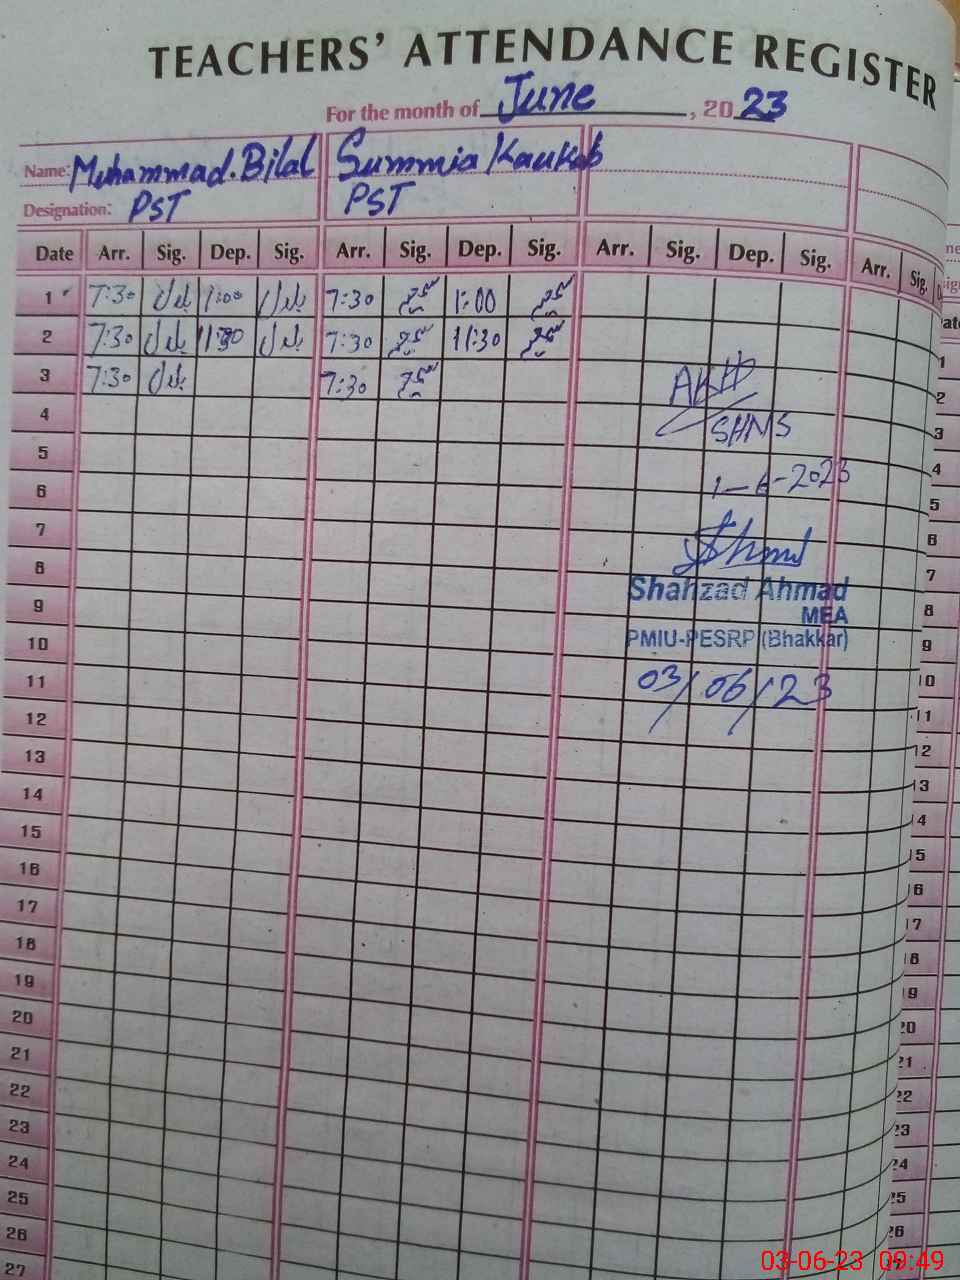 TEACHERS' ATTENDANCE REGISTER
For the month of June, 2023
Name: Muhammad.Bilal Summia Kaukab
Designation: PST PST
Date Arr. Sig. Dep. Sig. Arr. Sig. Dep. Sig. Arr. Sig. Dep. Sig. Arr. Sig.
1 7:30 بلال 1:00 بلال 7:30 1:00
2 7:30 بلال 11:30 بلال 7:30 11:30
3 7:30 بلال 7:30
4
5
6
7
8
9
10
11
12
13
14
15
16
17
18
19
20
21
22
23
24
25
26
27
SHNS
1-6-2023
Shahzad Ahmad
MEA
PMIU-PESRP (Bhakkar)
03/06/23
1
2
3
4
5
6
7
8
9
10
11
12
13
14
15
16
17
18
19
20
21
22
23
24
25
26
03-06-23 09:49